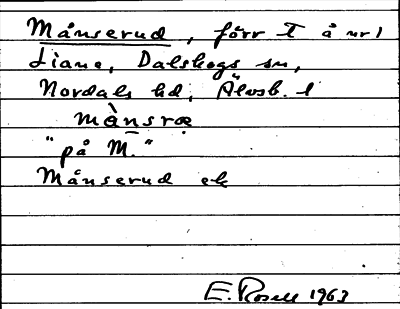 Månserud, förr T å nr 1
Liane, Dalskogs sn,
Nordals hd, Älvsb. l
mànsrœ
"på M."
Månserud ek
E. Rosell 1963